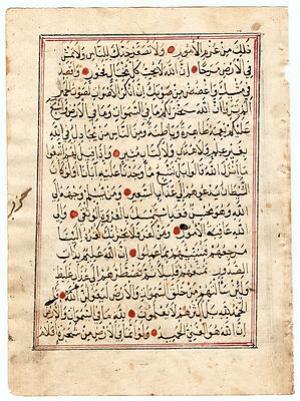 ذلك من عزم الأمور ولا تصعر خدك للناس ولا تمش
في الأرض مرحا إن الله لا يحب كل مختال فخور واقصد
في مشيك واغضض من صوتك إن أنكر الأصوات لصوت الحمير
ألم تروا أن الله سخر لكم ما في السموات وما في الأرض وأسبغ
عليكم نعمه ظاهرة وباطنة ومن الناس من يجادل في الله
بغير علم ولا هدى ولا كتاب منير وإذا قيل لهم اتبعوا
ما أنزل الله قالوا بل نتبع ما وجدنا عليه آباءنا أولو كان
الشيطان يدعوهم إلى عذاب السعير ومن يسلم وجهه إلى
الله وهو محسن فقد استمسك بالعروة الوثقى وإلى
الله عاقبة الأمور ومن كفر فلا يحزنك كفره إلينا
مرجعهم فننبئهم بما عملوا إن الله عليم بذات
الصدور نمتعهم قليلا ثم نضطرهم إلى عذاب غليظ
ولئن سألتهم من خلق السموات والأرض ليقولن الله قل
الحمد لله بل أكثرهم لا يعلمون لله ما في السموات والأرض
إن الله هو الغني الحميد ولو أنما في الأرض من شجرة أقلام